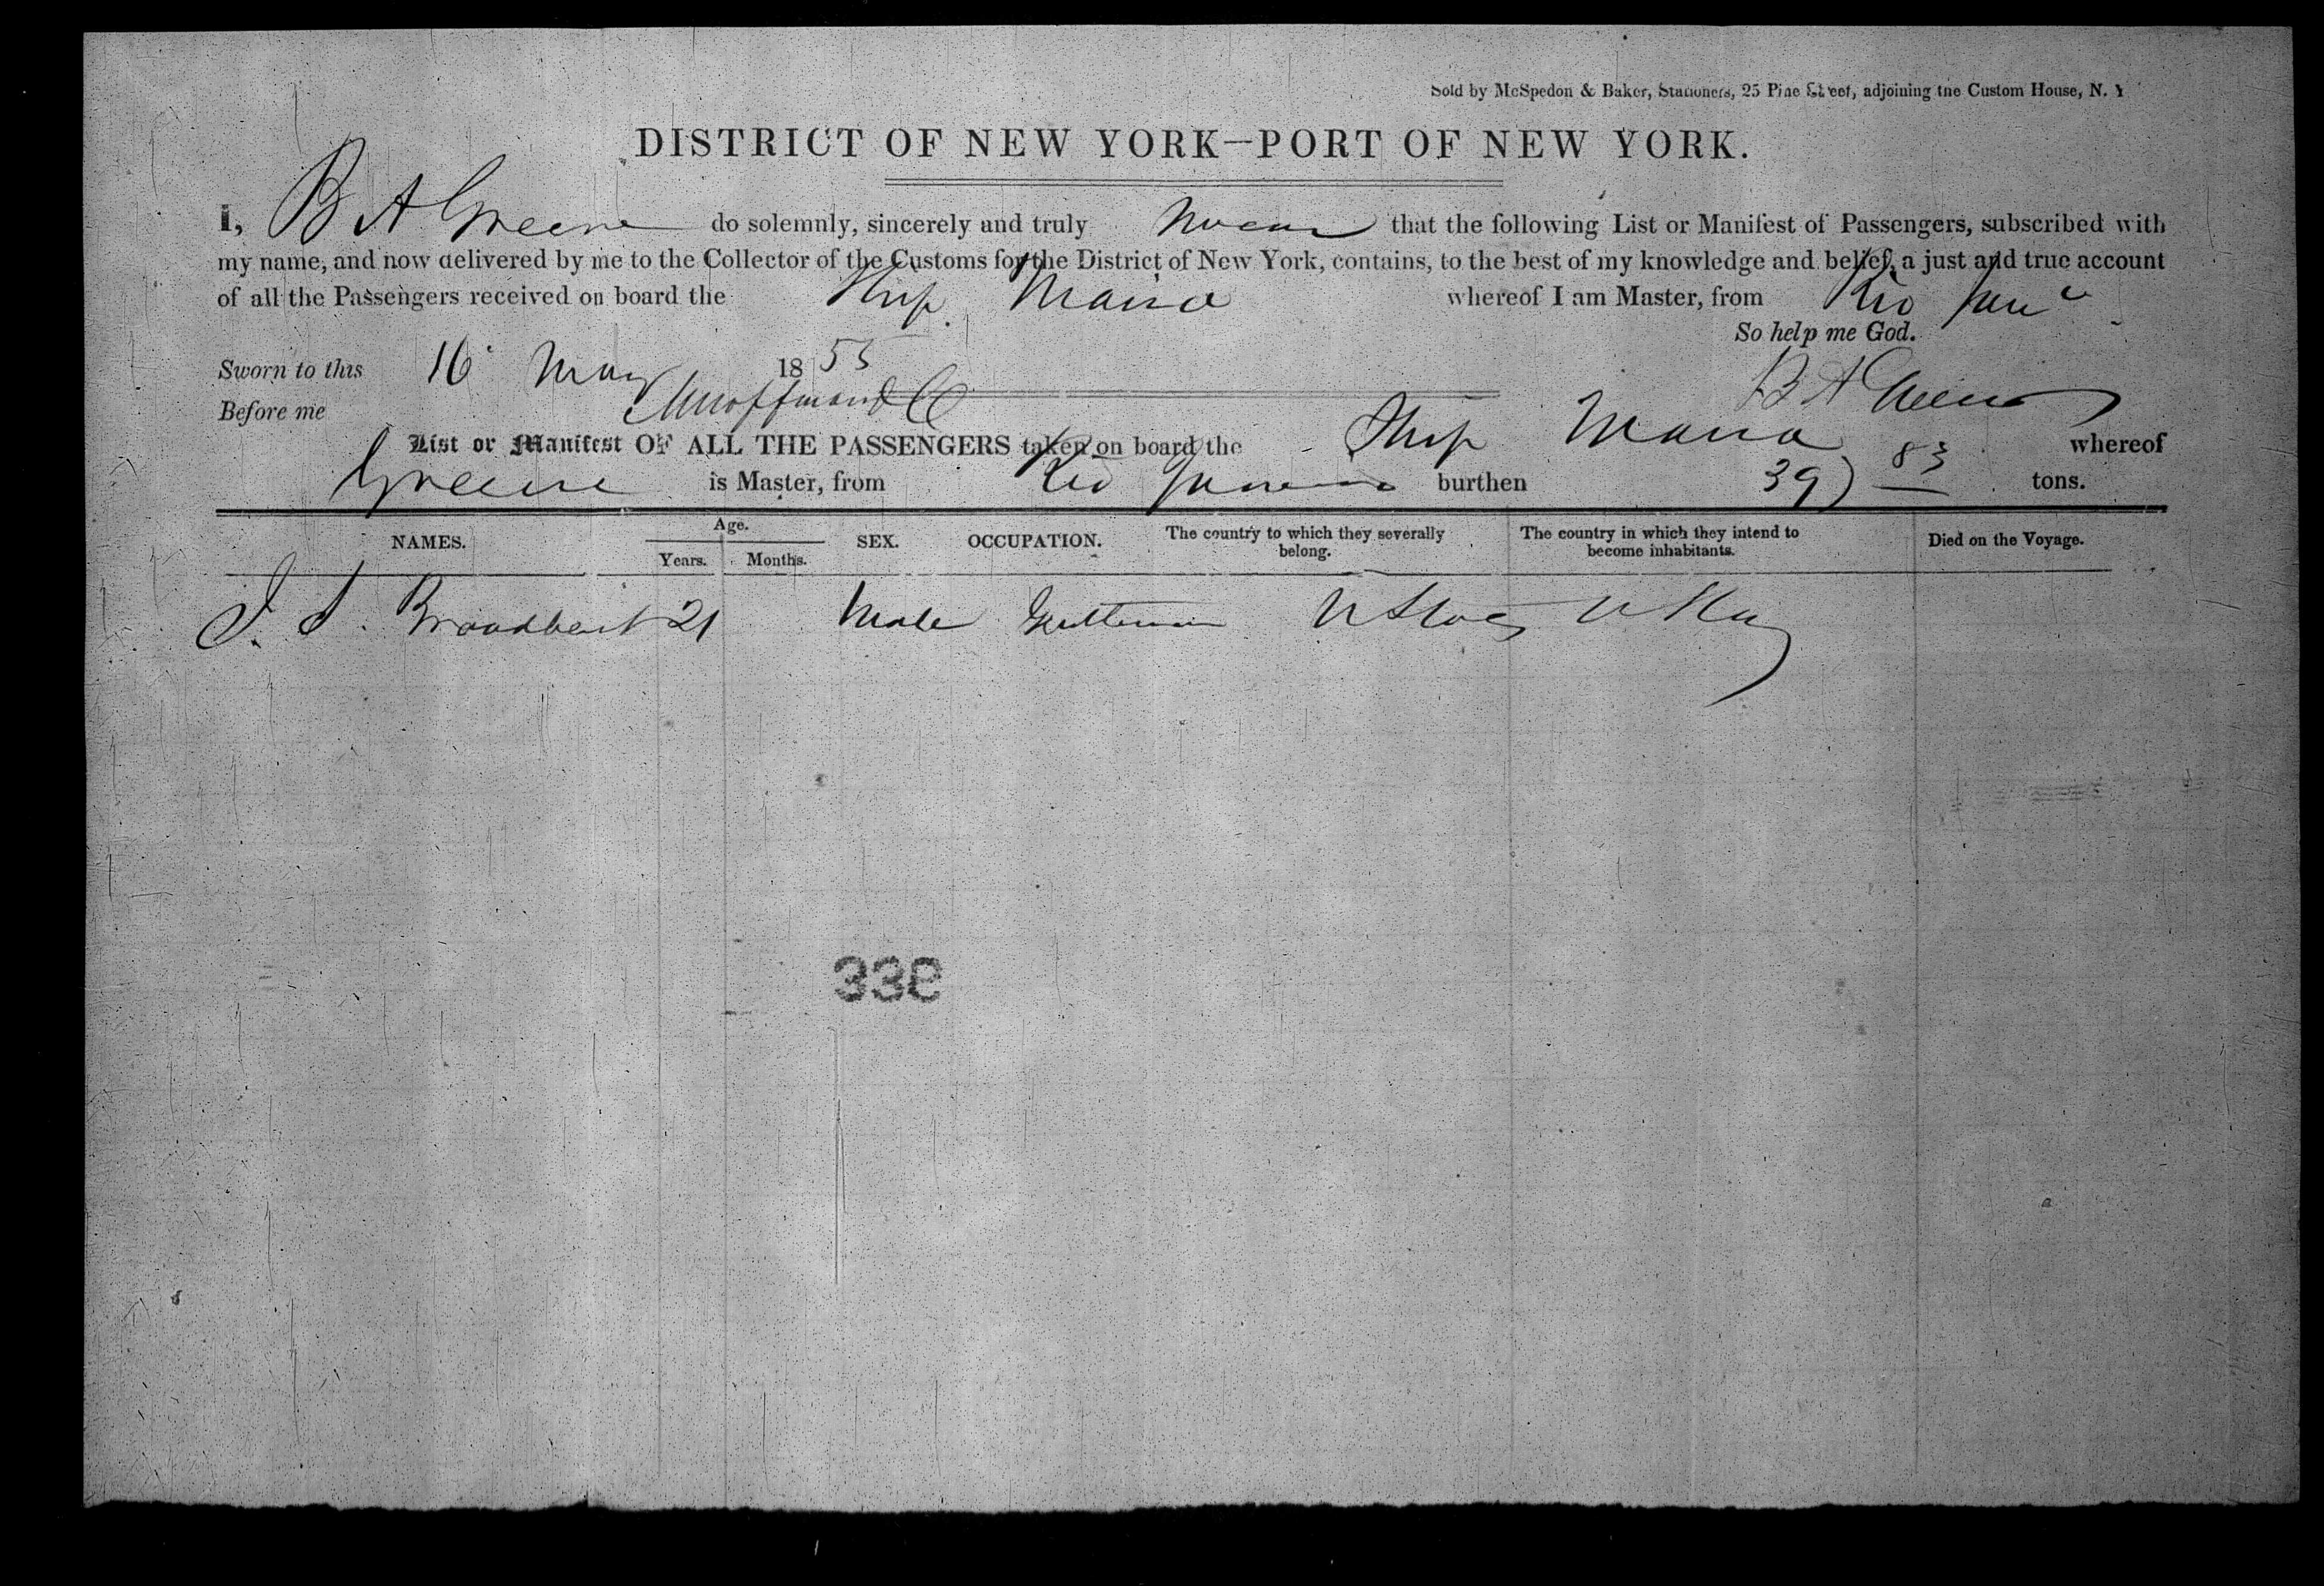 Sold by McSpedon & Baker, Stationers, 25 Pine Street, adjoining the Custom House, N. Y
DISTRICT OF NEW YORK—PORT OF NEW YORK.
I, B A Greene do solemnly, sincerely and truly swear that the following List or Manifest of Passengers, subscribed with
my name, and now delivered by me to the Collector of the Customs for the District of New York, contains, to the best of my knowledge and belief, a just and true account
of all the Passengers received on board the Ship Maria whereof I am Master, from Rio Jane
So help me God.
Sworn to this 16 May 1853
B A Greene
Before me
List or Manifest OF ALL THE PASSENGERS taken on board the Ship Maria whereof
Greene is Master, from Rio Janeiro burthen 83 tons.
NAMES. Age. SEX. OCCUPATION. The country to which they severally belong. The country in which they intend to become inhabitants. Died on the Voyage.
Years. Months.
J. S. Broadbent 21 Male Gentleman U States U Sta
339